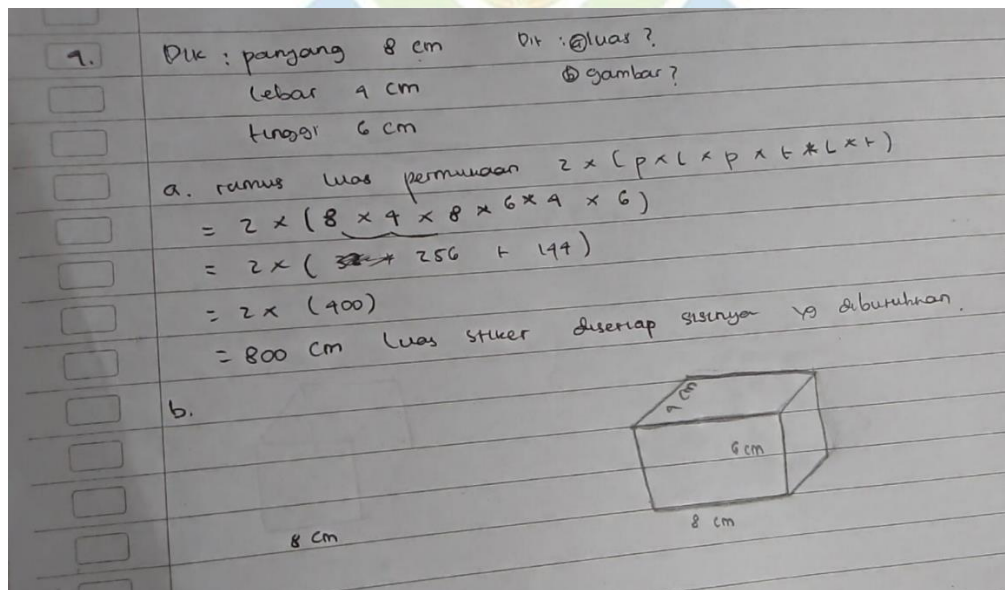 4. Dik : panjang 8 cm Dit : ⓐ luas ?
lebar 4 cm ⓑ gambar ?
tinggi 6 cm
a. rumus luas permukaan 2 × ( p × l × p × t × l × t )
= 2 × ( 8 × 4 × 8 × 6 × 4 × 6 )
= 2 × ( 256 + 144 )
= 2 × (400)
= 800 cm luas stiker disetiap sisinya yg dibutuhkan.
b.
4 cm
6 cm
8 cm
8 cm